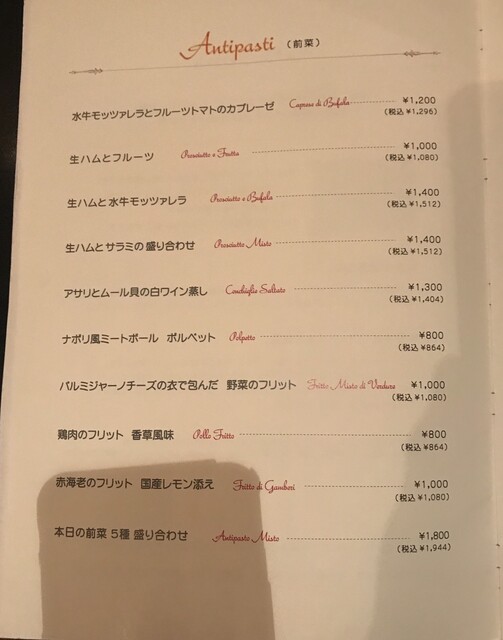 Antipasti （前菜）
水牛モッツァレラとフルーツトマトのカプレーゼ Caprese di Bufala ¥1,200
(税込 ¥1,296)
生ハムとフルーツ Prosciutto e Frutta ¥1,000
(税込 ¥1,080)
生ハムと水牛モッツァレラ Prosciutto e Bufala ¥1,400
(税込 ¥1,512)
生ハムとサラミの盛り合わせ Prosciutto Misto ¥1,400
(税込 ¥1,512)
アサリとムール貝の白ワイン蒸し Conchiglie Saltate ¥1,300
(税込 ¥1,404)
ナポリ風ミートボール ポルペット Polpetto ¥800
(税込 ¥864)
パルミジャーノチーズの衣で包んだ 野菜のフリット Fritto Misto di Verdure ¥1,000
(税込 ¥1,080)
鶏肉のフリット 香草風味 Pollo Fritto ¥800
(税込 ¥864)
赤海老のフリット 国産レモン添え Fritto di Gamberi ¥1,000
(税込 ¥1,080)
本日の前菜 5種 盛り合わせ Antipasto Misto ¥1,800
(税込 ¥1,944)